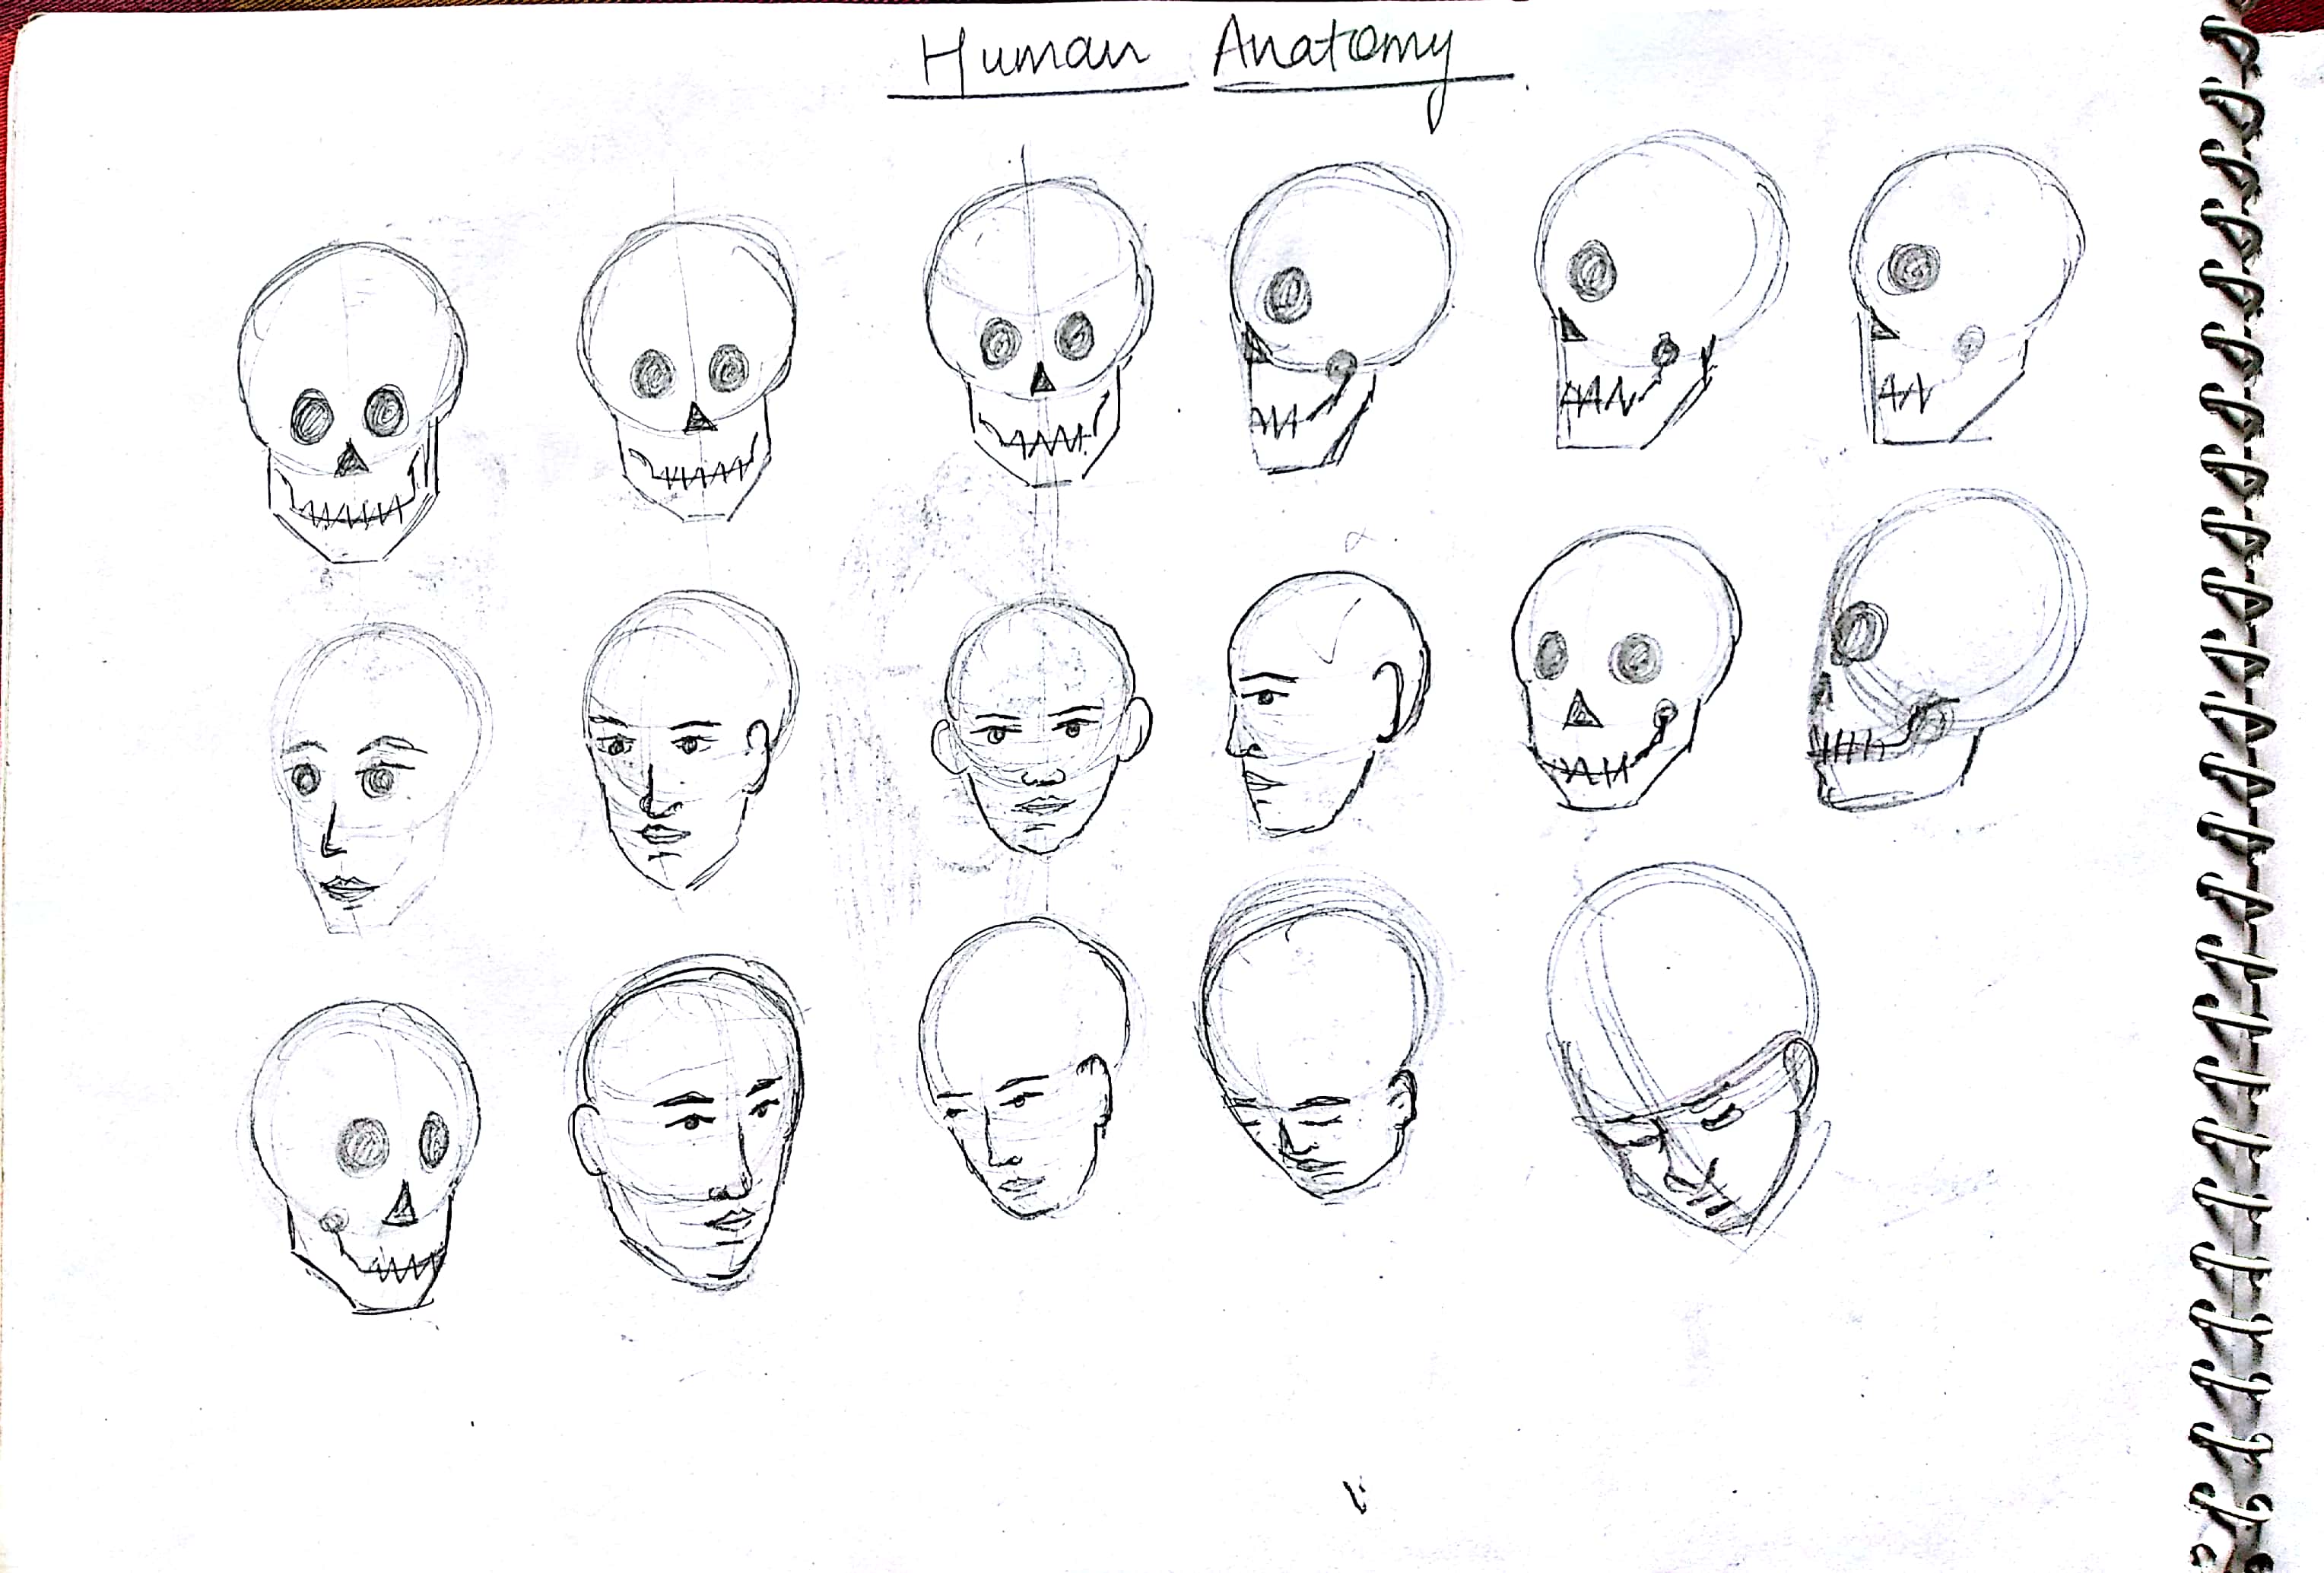 Human Anatomy